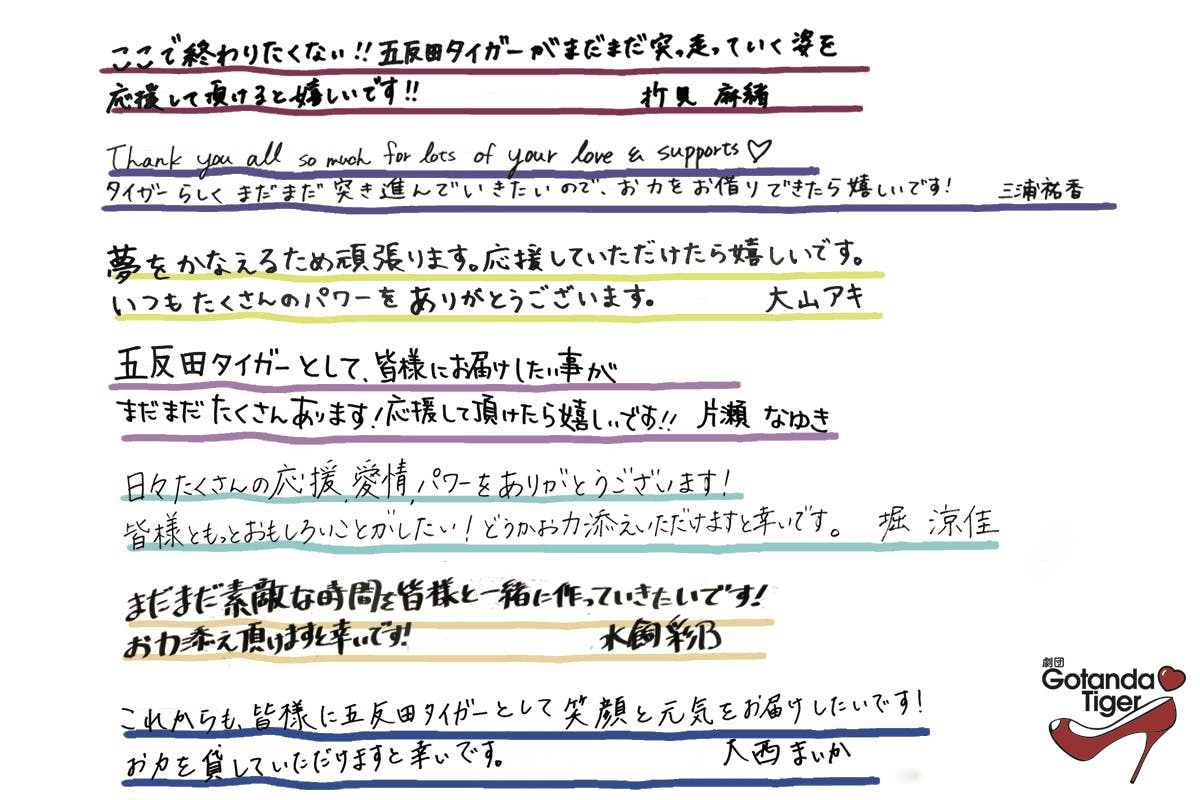 ここで終わりたくない!!五反田タイガーがまだまだ突っ走っていく姿を
応援して頂けると嬉しいです!! 折見 麻緒
Thank you all so much for lots of your love & supports♡
タイガーらしくまだまだ突き進んでいきたいので、お力をお借りできたら嬉しいです! 三浦祐香
夢をかなえるため頑張ります。応援していただけたら嬉しいです。
いつもたくさんのパワーをありがとうございます。 大山アキ
五反田タイガーとして、皆様にお届けしたい事が
まだまだたくさんあります!応援して頂けたら嬉しいです!! 片瀬 なゆき
日々たくさんの応援,愛情,パワーをありがとうございます!
皆様ともっとおもしろいことがしたい!どうかお力添えいただけますと幸いです。 堀 涼佳
まだまだ素敵な時間を皆様と一緒に作っていきたいです!
お力添え頂けますと幸いです! 水飼彩乃
これからも、皆様に五反田タイガーとして笑顔と元気をお届けしたいです!
お力を貸していただけますと幸いです。 大西まいか
劇団
Gotanda
Tiger